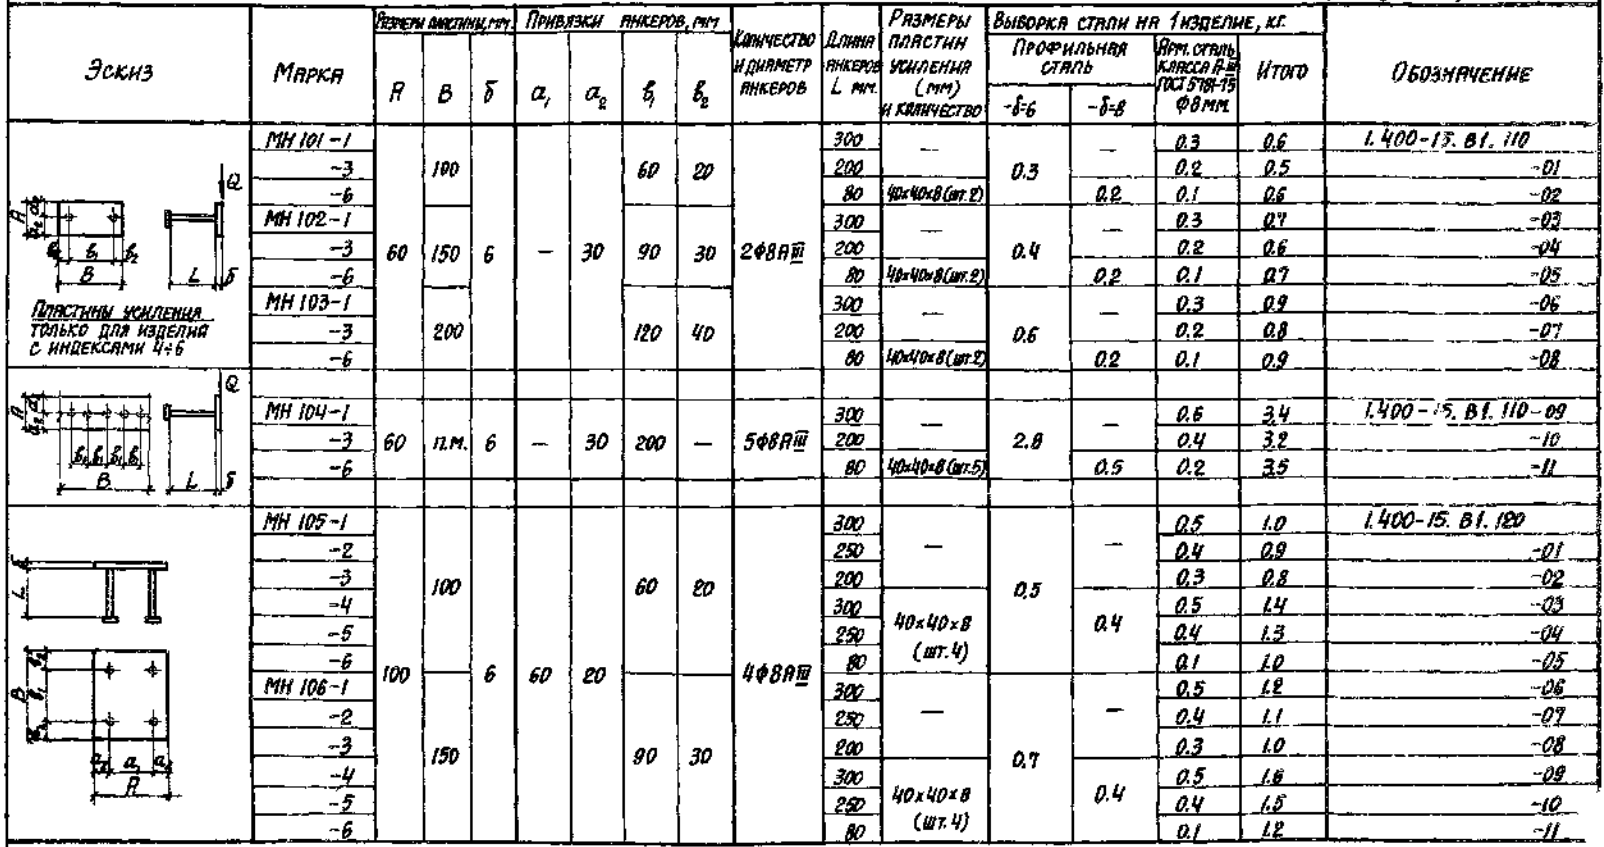 Эскиз
Марка
Размеры пластины, мм
А В б
Привязки анкеров, мм
а₁ а₂ в₁ в₂
Количество и диаметр анкеров
Длина анкеров L мм.
Размеры пластин усиления (мм) и количество
Выборка стали на 1 изделие, кг.
Профильная сталь
-δ=6 -δ=8
Арм. сталь класса А-III ГОСТ 5781-75 Ф8мм.
Итого
Обозначение
МН 101-1 60 100 6 — 30 60 20 2Ф8АIII 300 — 0.3 — 0.3 0.6 1.400-15. В1. 110
-3 200 0.2 0.5 -01
-6 80 40×40×8 (шт.2) 0.2 0.1 0.6 -02
МН 102-1 150 90 30 300 — 0.4 — 0.3 0.7 -03
-3 200 0.2 0.6 -04
-6 80 40×40×8 (шт.2) 0.2 0.1 0.7 -05
МН 103-1 200 120 40 300 — 0.6 — 0.3 0.9 -06
-3 200 0.2 0.8 -07
-6 80 40×40×8 (шт.2) 0.2 0.1 0.9 -08
Q
А а₂ а₂
в₂ в₁ в₂
В L б
Пластины усиления
только для изделий
с индексами 4÷6
МН 104-1 60 п.м. 6 — 30 200 — 5Ф8АIII 300 — 2.8 — 0.6 3.4 1.400-15. В1. 110-09
-3 200 0.4 3.2 -10
-6 80 40×40×8 (шт.5) 0.5 0.2 3.5 -11
Q
А а₂ а₂
в₁ в₁ в₁ в₁
В L б
МН 105-1 100 100 6 60 20 60 20 4Ф8АIII 300 — 0.5 — 0.5 1.0 1.400-15. В1. 120
-2 250 0.4 0.9 -01
-3 200 0.3 0.8 -02
-4 300 40×40×8 (шт.4) 0.4 0.5 1.4 -03
-5 250 0.4 1.3 -04
-6 80 0.1 1.0 -05
МН 106-1 150 90 30 300 — 0.7 — 0.5 1.2 -06
-2 250 0.4 1.1 -07
-3 200 0.3 1.0 -08
-4 300 40×40×8 (шт.4) 0.4 0.5 1.6 -09
-5 250 0.4 1.5 -10
-6 80 0.1 1.2 -11
б L
В в₂ в₁ в₂
а₂ а₁ а₂
А